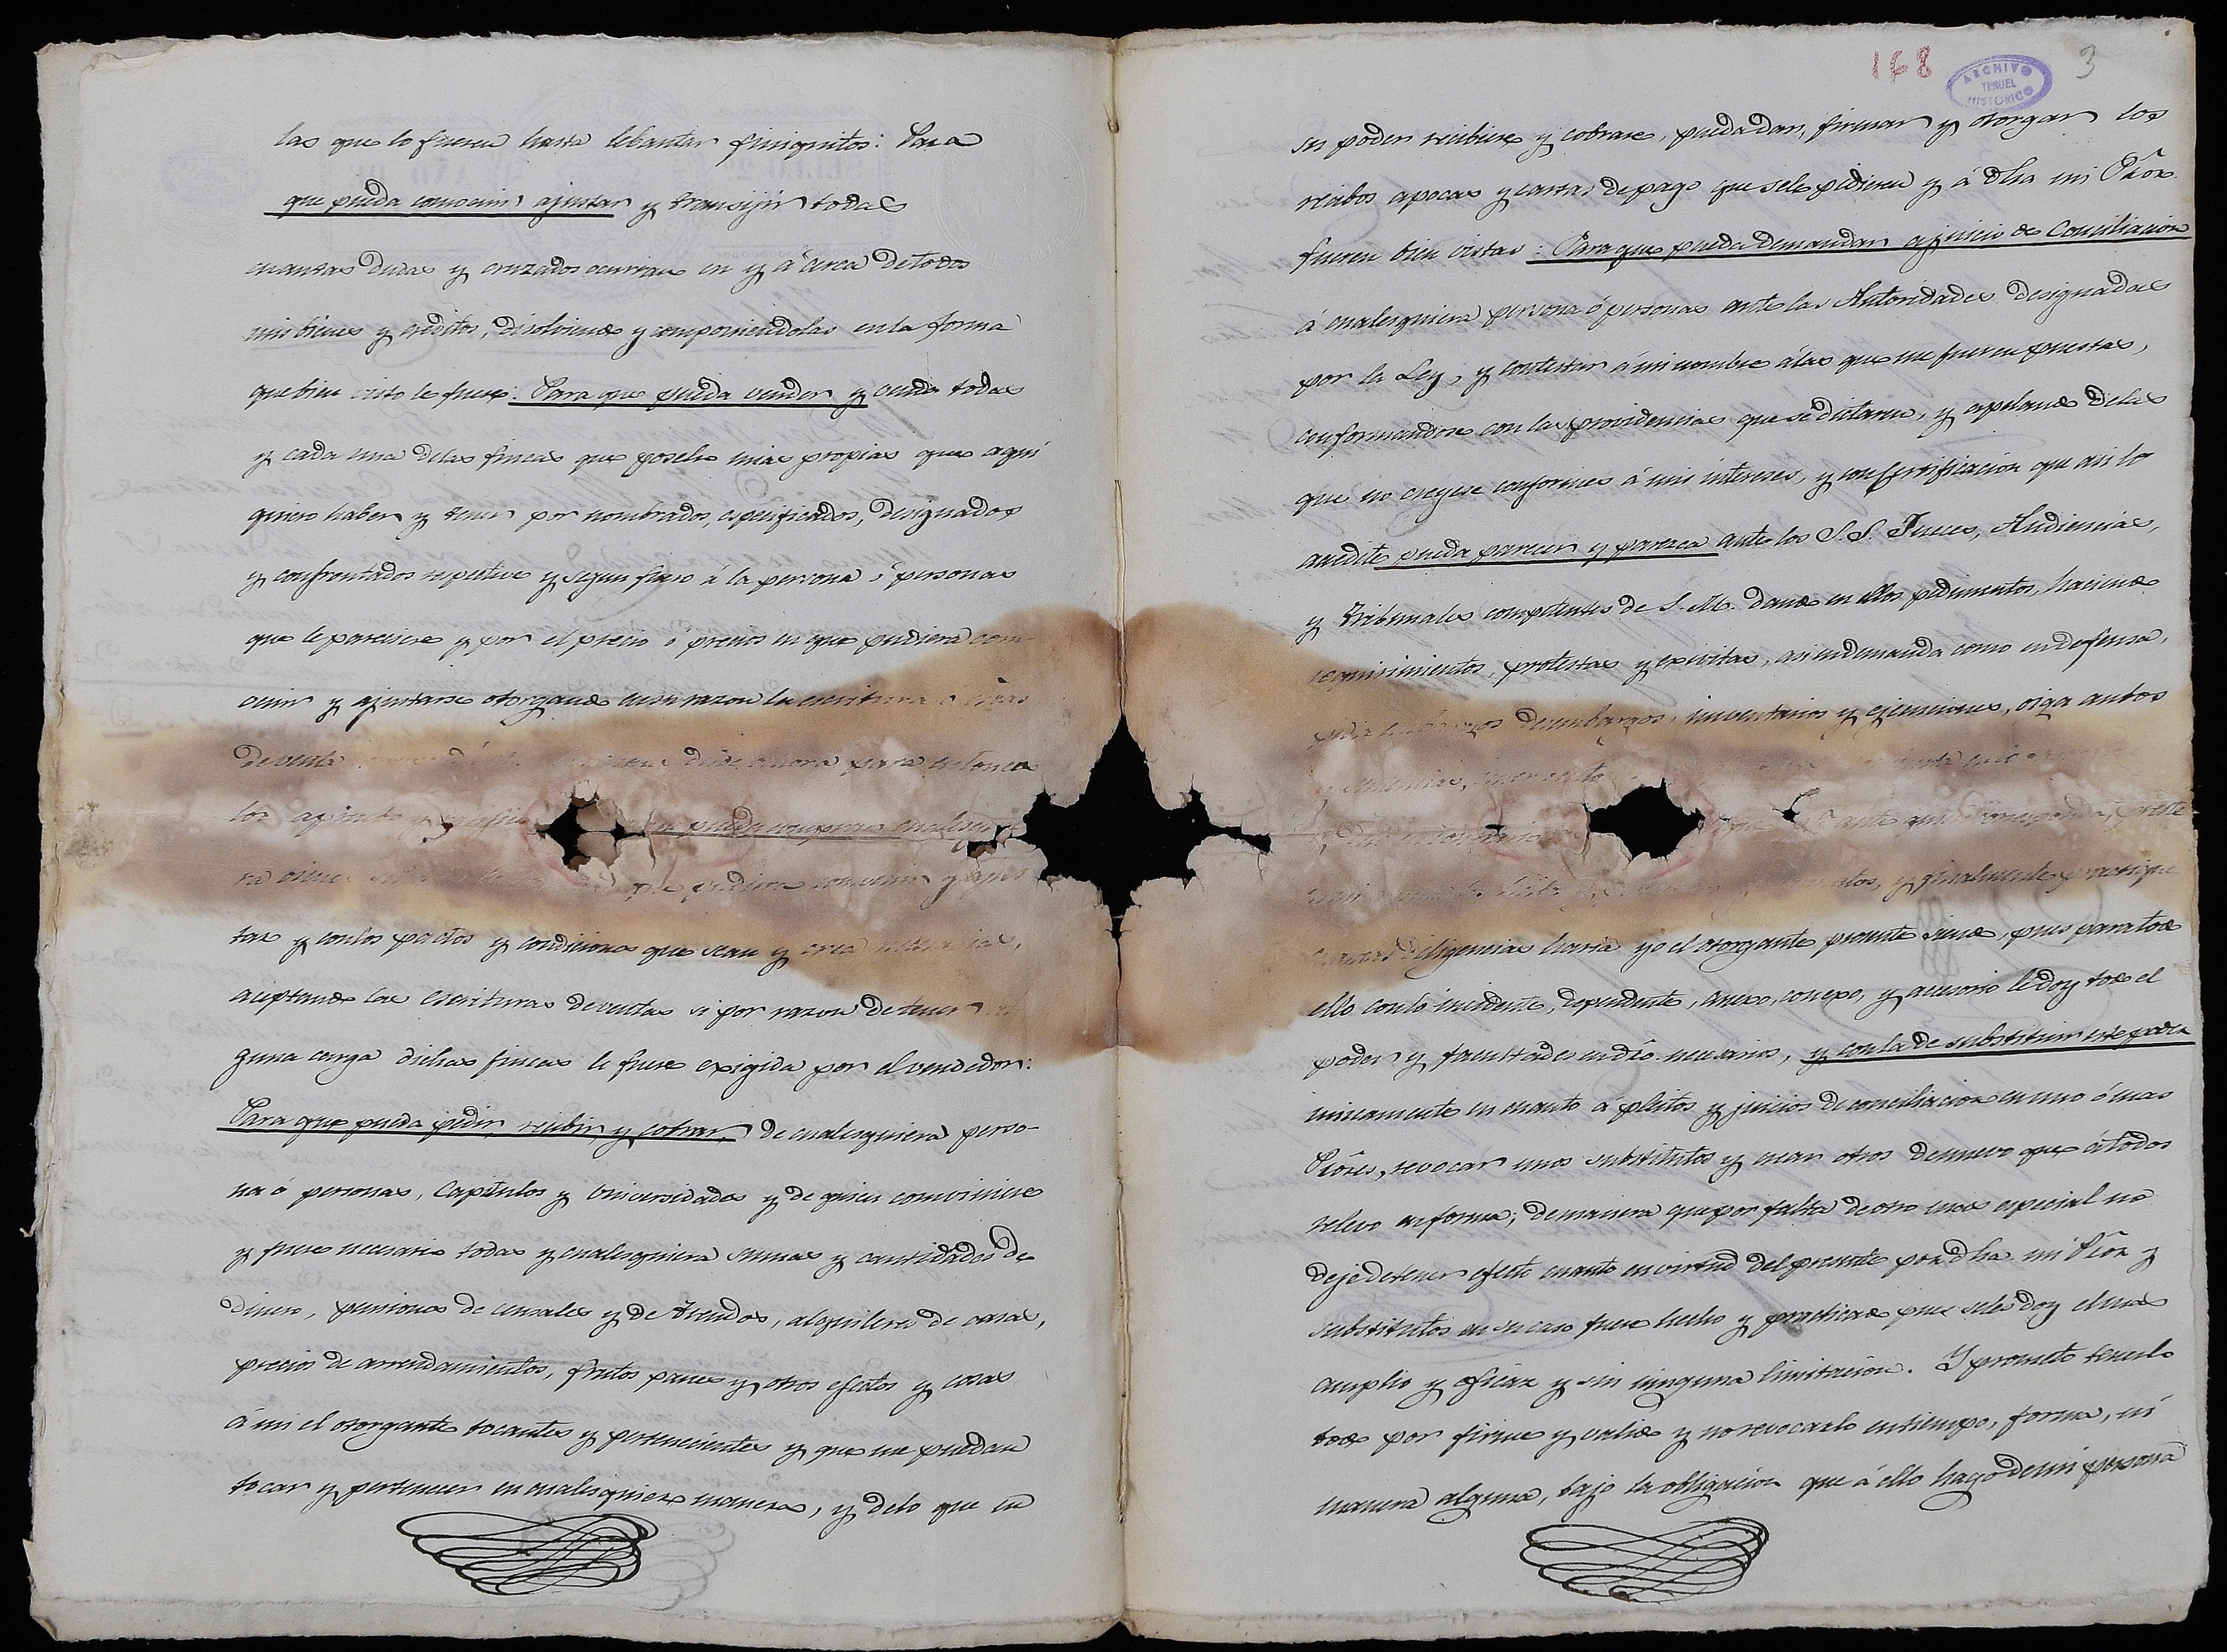 las que lo fueren hasta lebantar finiquitos: Para
que pueda convenir ajustar y transijir todas
cuantas dudas y cruzados ocurran en y á cerca de todos
mis bienes y creditos, disolviendo y componiendolas en la forma
que bien visto le fuere: Para que pueda vender y venda todas
y cada una de las fincas que poseho mias propias que aqui
quiero haber y tener por nombrados, especificados, designados
y confrontados respective y segun fuero á la persona ó personas
que le pareciere y por el precio ó precios en que pudiera con-
venir y ajustarse otorgando en su razon la escritura
de venta ahora para entonces
los apruebo pueda comprar
na que pudiera convenir y ajus
tar y con los pactos y condiciones que sean y crea necesarias,
aceptando las escrituras de ventas si por razon de tener
guna carga dichas fincas le fuere exigida por el vendedor:
Para que pueda pedir, recibir y cobrar de cualesquiera perso-
na ó personas, Capitulos y Universidades y de quien conviniere
y fuere necesario todas y cualesquiera sumas y cantidades de
dinero, pensiones de censales y de treudos, alquileres de casas,
precios de arrendamientos, frutos panes y otros efectos y cosas
á mi el otorgante tocantes y pertenecientes y que me puedan
tocar y pertenecer en cualesquiere manera, y de lo que en
168 ARCHIVO TERUEL HISTORICO 3
su poder recibiere y cobrare, pueda dar, firmar y otorgar los
recibos apocas y cartas de pago que se le pidieren y á dha mi Pror.
fueren bien vistas: Para que pueda demandar a juicio de Conciliacion
á cualesquiera persona ó personas ante las Autoridades designadas
por la Ley, y contestar á mi nombre á las que me fueren puestas,
conformandose con las providencias que se dictaren, y apelando de las
que no creyese conformes á mis intereses, y con Certificacion que asi lo
acredite pueda parecer y parezca ante los S. S. Jueces, Audiencias,
y Tribunales competentes de S. M. dando en ellos pedimentos, haciendo
requirimientos, protestas y exivitas, asi en demanda como en defensa,
pida desembargos, inventarios y ejecuciones, oiga autos
y
ante quien corresponda, preste
y finalmente practique
diligencias haria yo el otorgante presente siendo, pues para todo
ello con lo incidente, dependiente, anexo, conexo, y accesorio le doy todo el
poder y facultades en dro. necesarios, y con la de substituir este poder
unicamente en cuanto á pleitos y juicios de conciliacion en uno ó mas
Prores, revocar unos substitutos y crear otros de nuevo que á todos
relevo en forma; de manera que por falta de otro mas especial no
deje de tener efecto cuanto en virtud del presente por dha mi Pror y
substitutos en su caso fuere hecho y practicado pues se les doy el mas
amplio y eficaz y sin ninguna limitacion. Y prometo tenerlo
todo por firme y valido y no revocarlo en tiempo, forma, ni
manera alguna, bajo la obligacion que á ello hago de mi persona